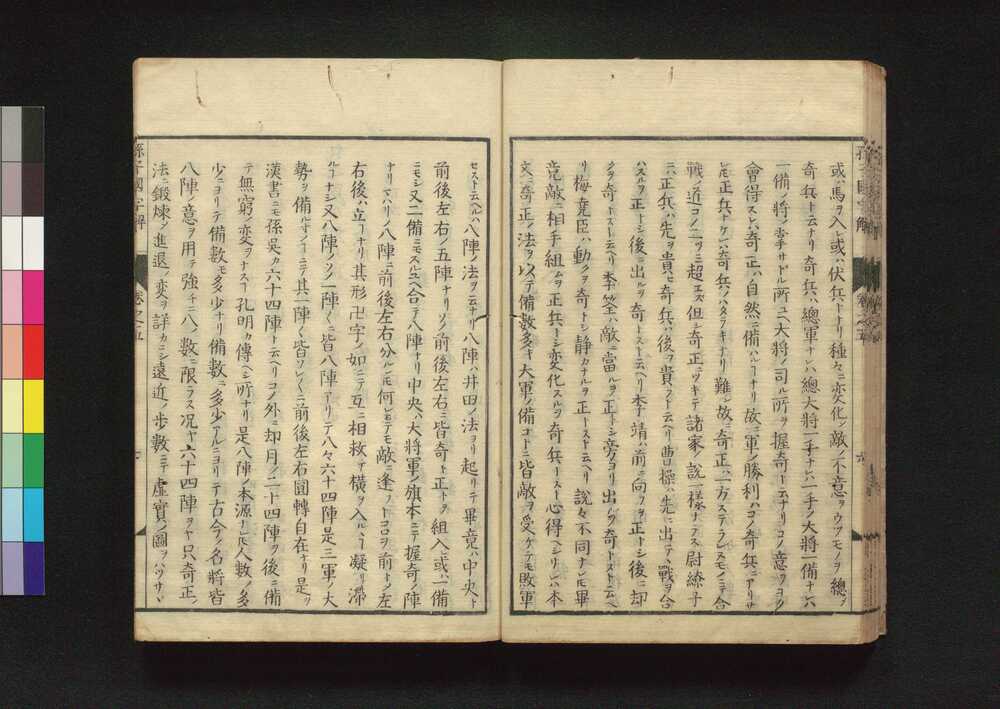 或ハ馬ヲ入レ或ハ伏兵トナリ種々ニ変化シ敵ノ不意ヲウツモノヲ總シテ
奇兵ト云ナリ奇兵ハ總軍ナレハ總大將一手ナレハ一手ノ大將一備ナレハ
一備ノ將ノ掌サトル所ユヘ大將ノ司ル所ヲ握奇ト云ナリコノ意ヲヨク
會得スレハ奇正ハ自然ニ備ハルナリ故ニ軍ノ勝利ハコノ奇兵ニアリサ
レ𪜈正兵ナケレハ奇兵ノハタラキナリ難シ故ニ奇正ハ一方ステラレヌモノニテ合
戰ノ道コノ二ツニ超エズ但シ奇正ニツキテ諸家ノ説一樣ナラス尉繚子
ニハ正兵ハ先ヲ貴ヒ奇兵ハ後ヲ貴フト云ヘリ曹操ハ先ニ出テヽ戰ヲ合
ハスルヲ正トシ後ニ出ルヲ奇トスト云ヘリ李靖ハ前ニ向フヲ正トシ後ニ却
クヲ奇トスト云ヘリ李筌ハ敵ニ當ルヲ正トシ旁ヨリ出ルヲ奇トスト云ヘ
リ梅堯臣ハ動クヲ奇トシ静カナルヲ正トスト云ヘリ説々不同ナレ𪜈畢
竟敵ニ相手組ムヲ正兵トシ変化スルヲ奇兵トスト心得ヘシサレハ本
文ニ奇正ノ法ヲ以テ備數多キ大軍ノ備コトニ皆敵ヲ受ケテモ敗軍
セスト云ヘルハ八陣ノ法ヲ云ナリ八陣ハ井田ノ法ヨリ起リテ畢竟ハ中央ト
前後左右ノ五陣ナリソノ前後左右ニ皆奇ト正トヲ組入レ或ハ一備
ニモシ又二備ニモスルユヘ合テ八陣ナリ中央ハ大將軍ノ旗本ニテ握奇ノ陣
ナリマハリノ八陣ニ前後左右分レ𪜈何レニテモ敵ニ逢フトコロヲ前トシ左
右後ハ立ナリ其形卍字ノ如ニテ互ニ相救テ橫ヲ入ルヽナリ凝リ滯
ルナシ又八陣ノソノ一陣々々ニ皆八陣アリテ八々六十四陣是三軍ノ大
勢ヲ備ルニテ其一陣々々皆ソレ〳〵ニ前後左右圓轉自在ナリ是ヲ
漢書ニモ孫吳カ六十四陣ト云ヘリコノ外ニ却月ノ二十四陣ヲ後ニ備
テ無窮ノ変ヲナスヿ孔明カ傳ヘシ所ナリ是八陣ノ本源ナレ𪜈人數ノ多
少ニヨリテ備數モ多少アリ備數ニ多少アルニヨリテ古今ノ名將皆
八陣ノ意ヲ用テ強チニ八ノ數ニ限ラス况ヤ六十四陣ヲヤ只奇正ノ
法ニ鍛煉シ進退ノ変ヲ詳カニシ遠近ノ步數ニテ虛實ノ圖ヲハツサヽ
孫子國字解
卷之五
六
七